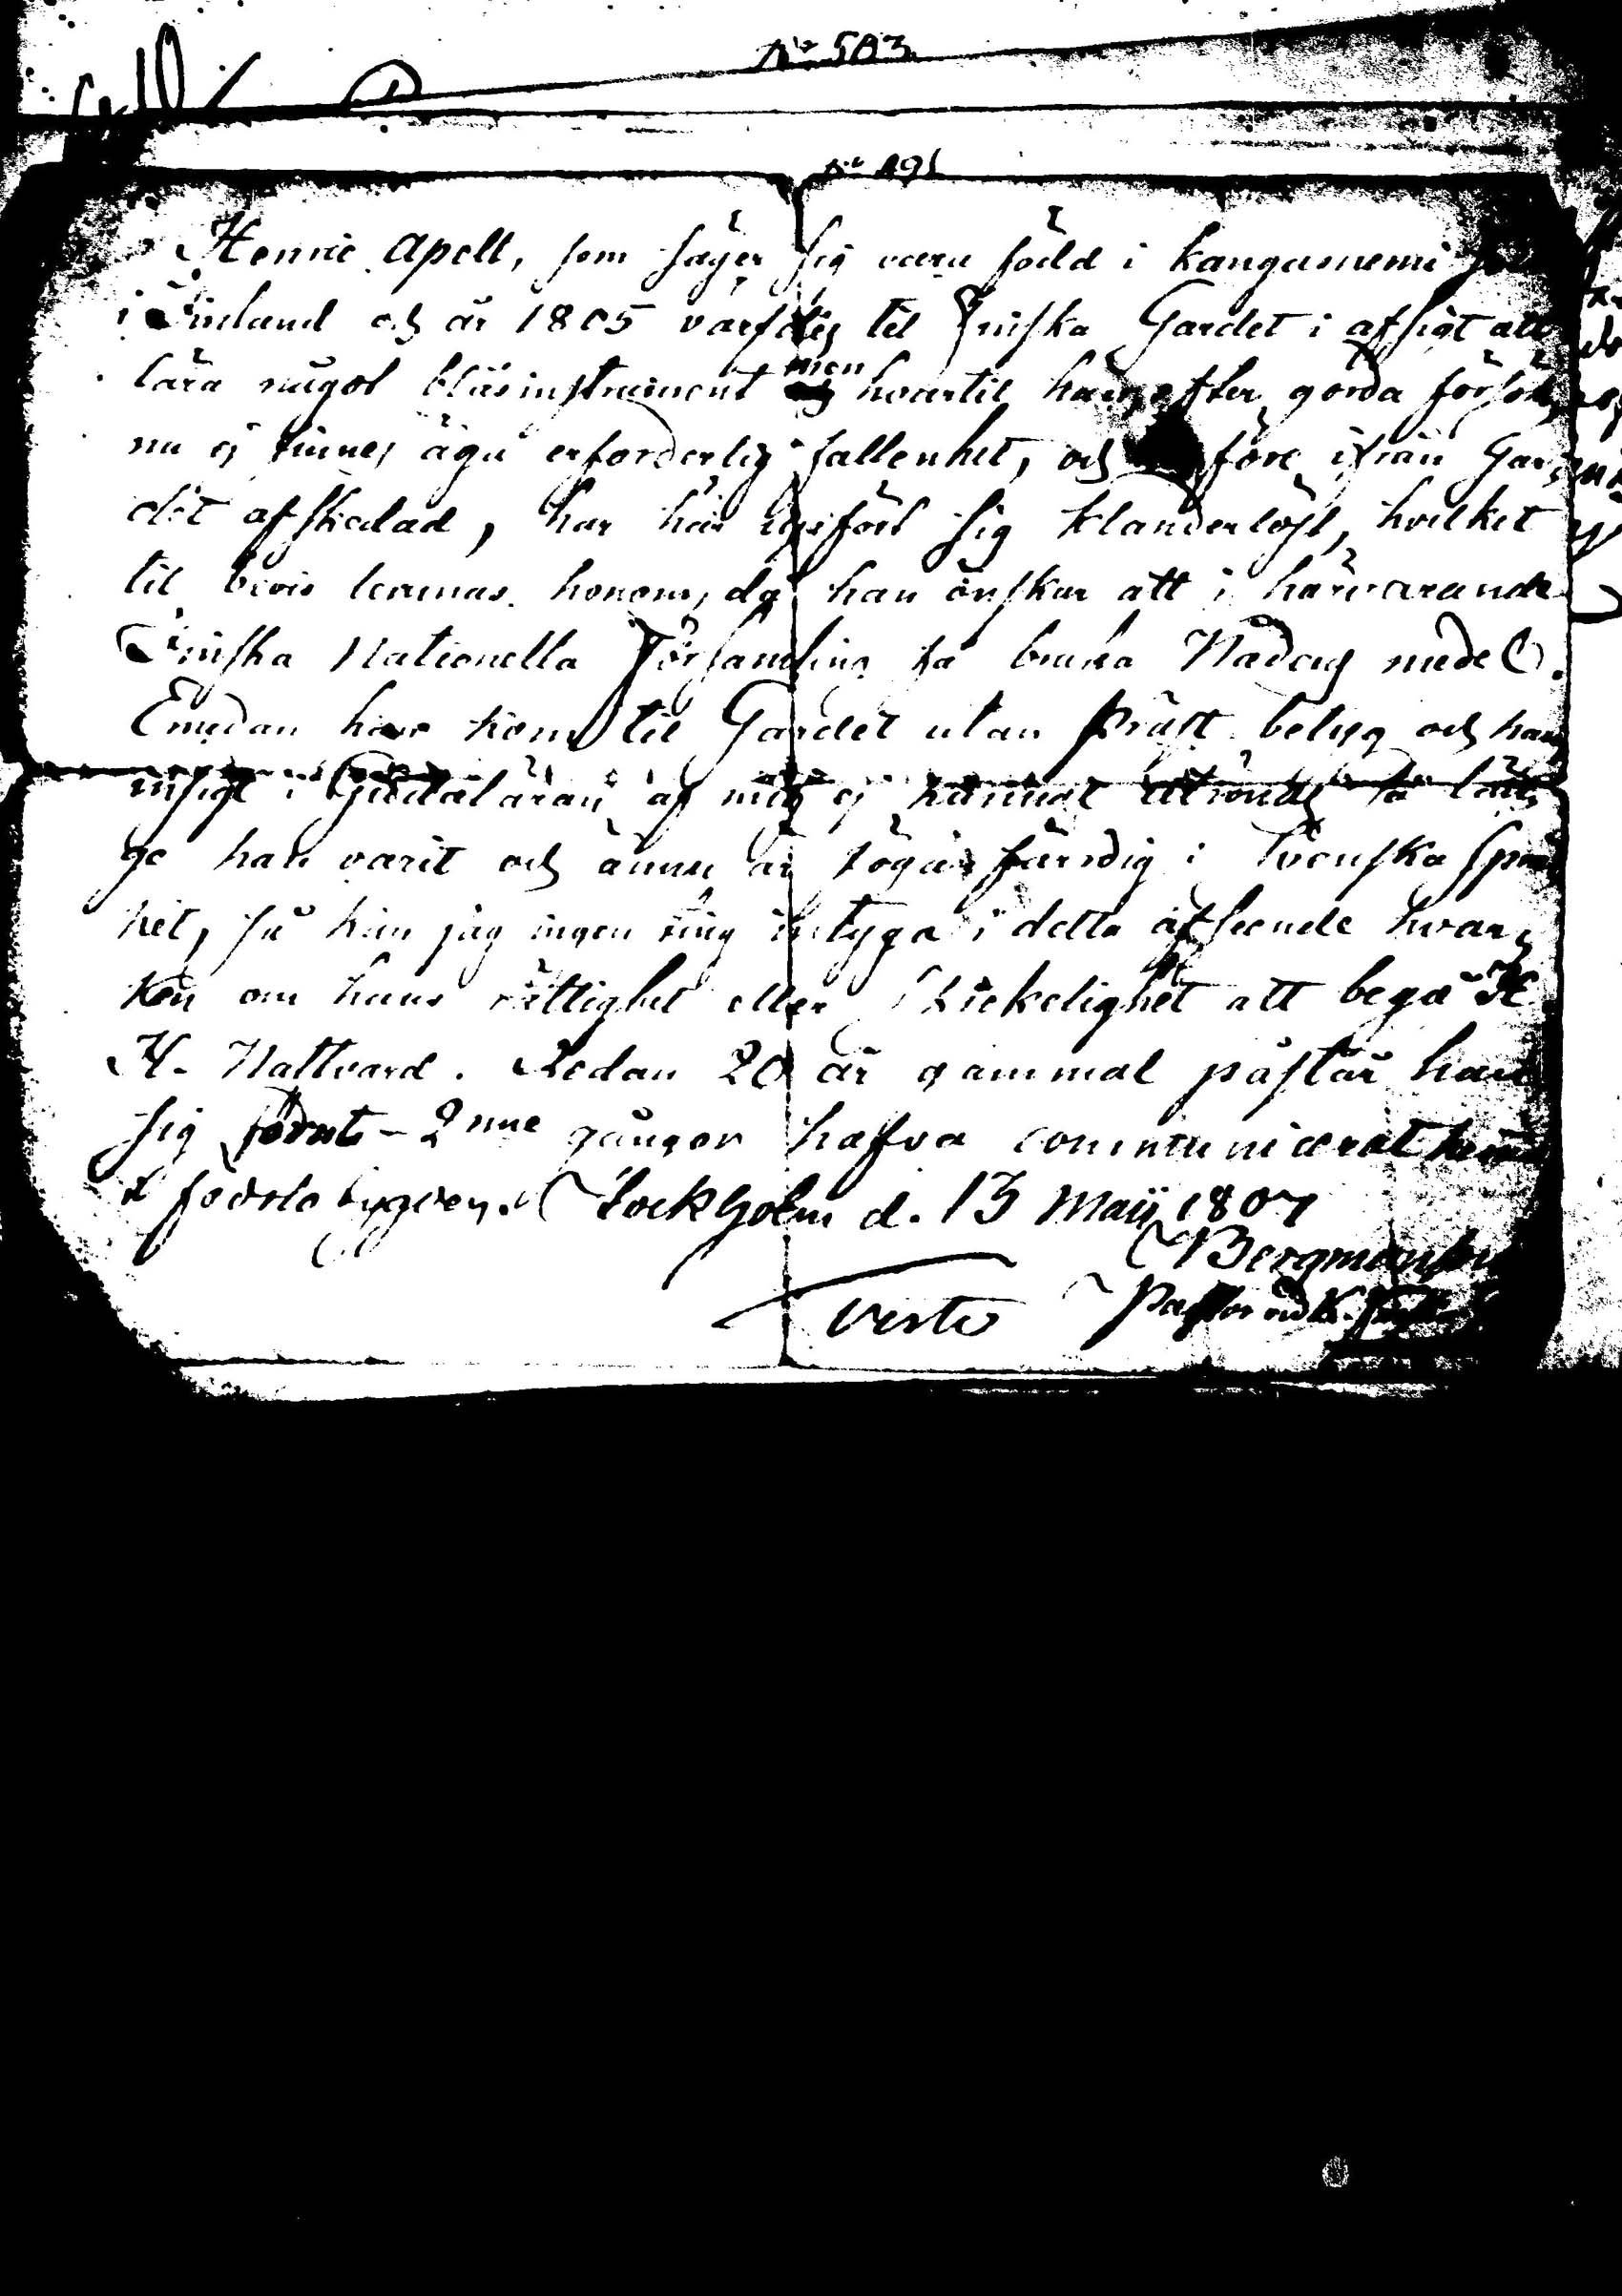 No 503
No 491
Henric Apell, som säger sig vara född i Kangasniemi
i Finland och år 1805 värfdes til Finska Gardet i afsigt att
lära något blåsinstrument men hvartil han efter gorda försök
nu ej finnes äga erforderlig fallenhet, och före ifrån Gar-
det afskedad, har här upfört sig klanderlöst, hvilket
til bevis lemnas honom, då han önskar att i härvarande
Finska Nationella Församling få bruka Nådens medel.
Emedan han kom til Gardet utan Präst betyg och hans
insigt i Gudaläran af mig ej kunnat utrönas så län-
ge han varit och ännu är föga färdig i Svenska språ
ket, så kan jag ingen ting intyga i detta afseende hvar-
ken om hans rättighet eller skickelighet att begå H.
H. Nattvard. Redan 20 år gammal påstår han
sig 2nne gånger hafva communicerat
födslobygden. Stockholm d. 13 Maij 1807
Bergman
Verte Pastor vid K.